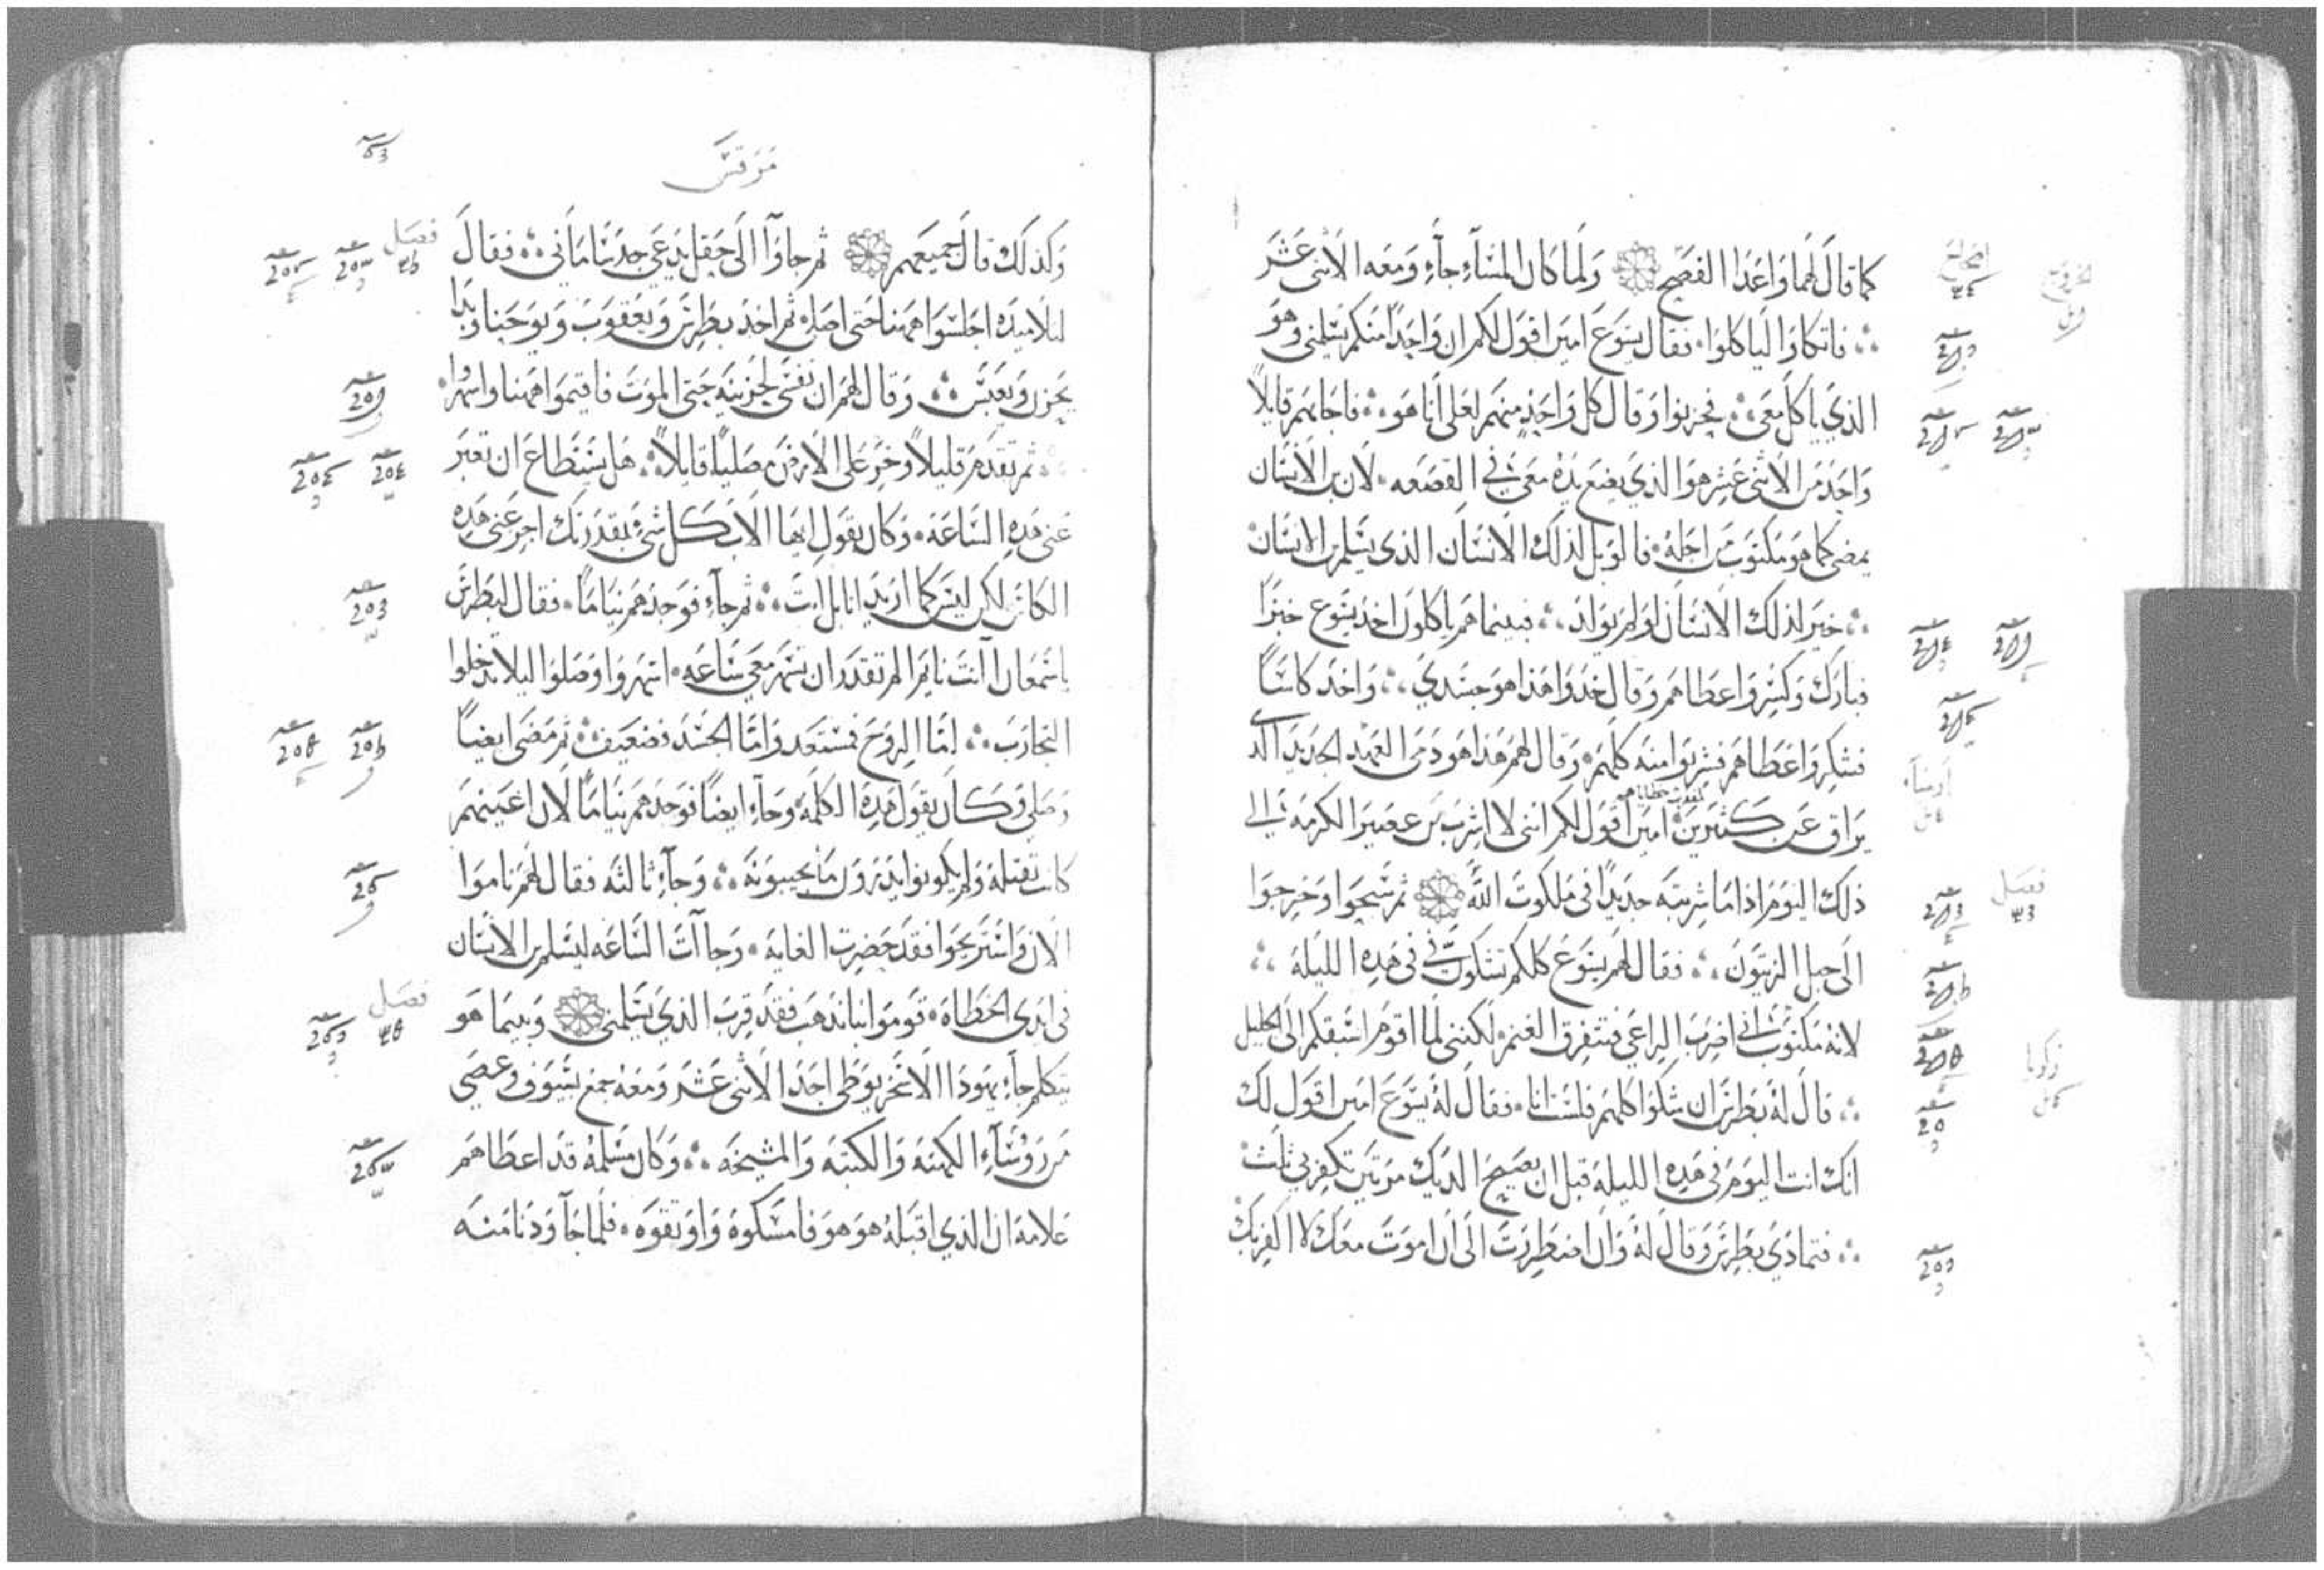 كما قال لهما واعدا الفصح ولما كان المساء جاء ومعه الاثنى عشر
فاتكاوا لياكلوا فقال يسوع امين اقول لكم ان واحدا منكم يسلمنى وهو
الذي ياكل معى فحزنوا وقال كل واحد منهم لعلى انا هو فاجابهم قايلا
واحد من الاثنى عشر هو الذي يضع يده معى في القصعه لان بن الانسان
يمضى كما هو مكتوب من اجله فالويل لذلك الانسان الذى يسلم بن الانسان
خير لذلك الانسان لو لم يولد فبينما هم ياكلون اخذ يسوع خبزا
فبارك وكسر واعطاهم وقال خذوا هذا هو جسدي واخذ كاسا
فشكر واعطاهم فشربوا منه كلهم وقال لهم هذا هو دمى العهد الجديد الدى
يراق عن كثيرين امين اقول لكم اننى لا اشرب من عصير الكرمه الى
ذلك اليوم اذا ما شربته جديدا فى ملكوت الله ثم سبحوا وخرجوا
الى جبل الزيتون فقال لهم يسوع كلكم تشكون في فى هذه الليله
لانه مكتوب انى اضرب الراعى فتتفرق الغنم لكننى لما اقوم اسبقكم الى الجليل
قال له بطرس ان شكوا كلهم فلست انا فقال له يسوع امين اقول لك
انك انت اليوم فى هذه الليله قبل ان يصيح الديك مرتين تكفر بي ثلث
فتمادي بطرس وقال له وان اضطررت الى ان اموت معك لا اكفر بك
اصحاح
فصل
زكريا
مرقس
وكذلك قال جميعهم ثم جاوا الى حقل يدعى جدسامانى فقال
لتلاميذه اجلسوا ههنا حتى اصلى ثم اخذ بطرس ويعقوب ويوحنا وبدا
يحزن ويعبس وقال لهم ان نفسى لحزينه حتى الموت فاقيموا ههنا واسهروا
ثم تقدم قليلا وخر على الارض مصليا قايلا هل يستطاع ان تعبر
عنى هذه الساعه وكان يقول ايها الاب كل شئ بقدرتك اجز عنى هذه
الكاس لكن ليس كما اريد انا بل انت ثم جاء فوجدهم نياما فقال لبطرس
ياسمعان انت نايم الم تقدر ان تسهر معى ساعه اسهروا وصلوا ليلا تدخلوا
التجارب اما الروح فمستعد واما الجسد فضعيف ثم مضى ايضا
وصلى وكان يقول هذه الكلمه وجاء ايضا فوجدهم نياما لان اعينهم
كانت ثقيله ولم يكونوا يدرون ما يجيبونه وجاء ثالثه فقال لهم ناموا
الان واستريحوا فقد حضرت الغايه وجاات الساعه ليسلم بن الانسان
فى ايدى الخطاه قوموا بنا نذهب فقد قرب الذي يسلمنى وبينما هو
يتكلم جاء يهوذا الاسخريوطى احد الاثنى عشر ومعه جمع بسيوف وعصى
من روساء الكهنه والكتبه والمشيخه وكان مسلمه قد اعطاهم
علامه ان الذي اقبله هو هو فامسكوه واوثقوه فلما جا ودنا منه
فصل
فصل